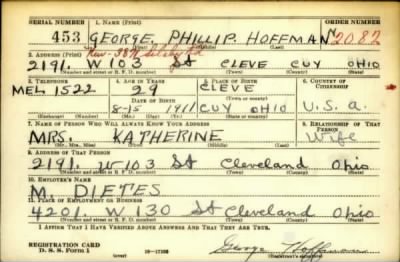 SERIAL NUMBER 1. NAME (Print) ORDER NUMBER
453 GEORGE, PHILLIP. HOFFMAN 2082
2. ADDRESS (Print)
2191. W 103 St CLEVE CUY OHIO
(Number and street or R. F. D. number) (Town) (County) (State)
3. TELEPHONE 4. AGE IN YEARS 5. PLACE OF BIRTH 6. COUNTRY OF CITIZENSHIP
MEL 1522 29 CLEVE
DATE OF BIRTH (Town or county)
8-15 1911 CUY OHIO U.S.A.
(Mo.) (Day) (Yr.) (State or country)
7. NAME OF PERSON WHO WILL ALWAYS KNOW YOUR ADDRESS 8. RELATIONSHIP OF THAT PERSON
MRS. KATHERINE Wife
(Mr., Mrs., Miss) (First) (Middle) (Last)
9. ADDRESS OF THAT PERSON
2191. W 103 St Cleveland Ohio
(Number and street or R. F. D. number) (Town) (County) (State)
10. EMPLOYER'S NAME
M. DIETES
11. PLACE OF EMPLOYMENT OR BUSINESS
4201. W 130 St Cleveland Ohio
(Number and street or R. F. D. number) (Town) (County) (State)
I AFFIRM THAT I HAVE VERIFIED ABOVE ANSWERS AND THAT THEY ARE TRUE.
REGISTRATION CARD
D. S. S. Form 1 George Hoffman
(Registrant's signature)